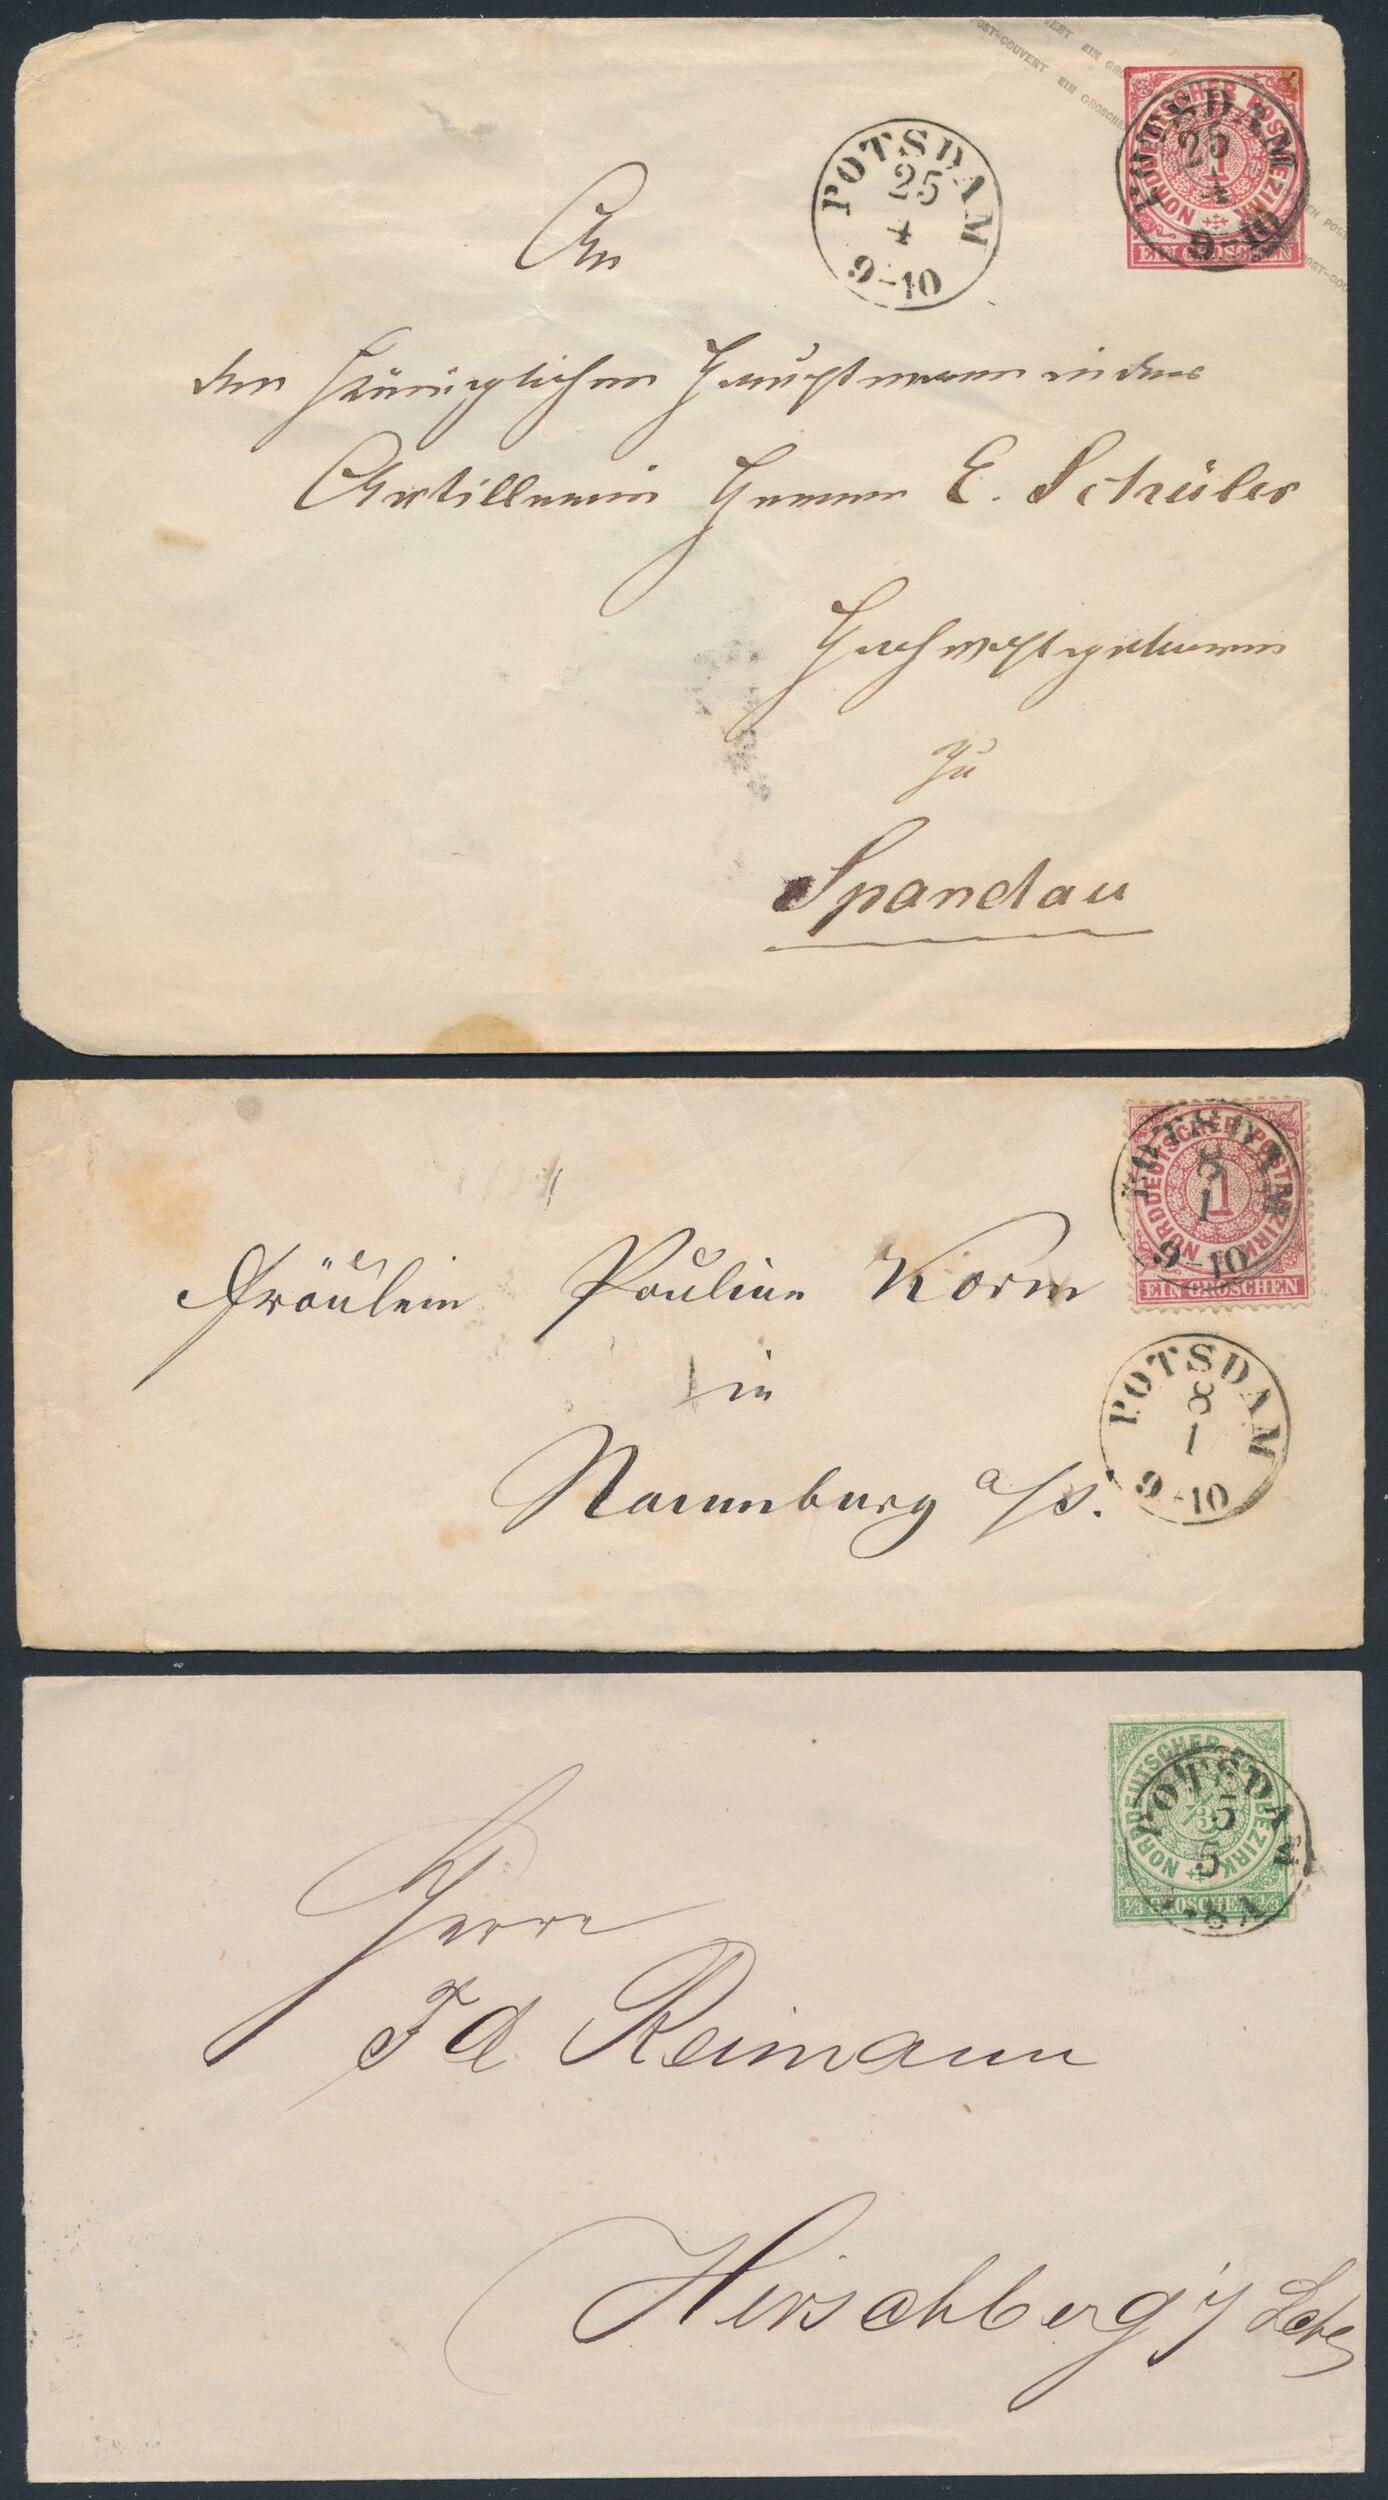 POST-COUVERT EIN GROSCHEN
NORDDEUTSCHER POSTBEZIRK
1
EIN GROSCHEN
POTSDAM
25
4
9-10
POTSDAM
25
4
9-10
An
den Königlichen Hauptmann in der
Artillerie Herrn E. Schüler
Hochwohlgeboren
zu
Spandau
NORDDEUTSCHER POSTBEZIRK
1
EIN GROSCHEN
POTSDAM
8
1
9-10
Fräulein Pauline Korn
in
Naumburg a/S.
POTSDAM
8
1
9-10
NORDDEUTSCHER POSTBEZIRK
1/3
1/3 GROSCHEN 1/3
POTSDAM
5
5
Herrn
Fd Reimann
Hirschberg i/